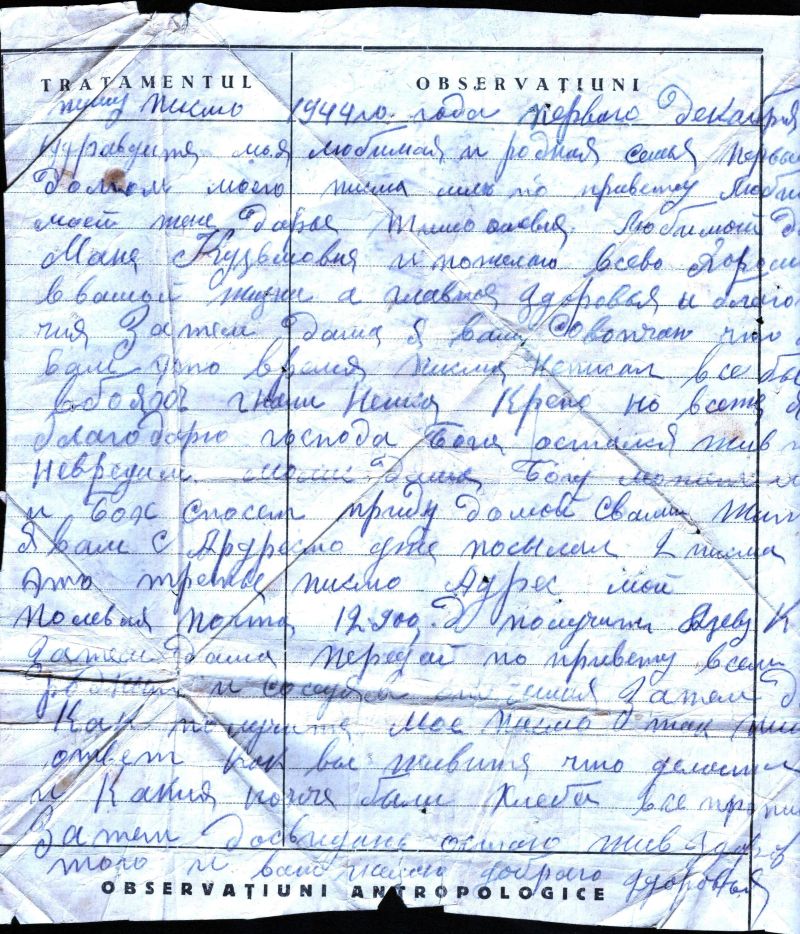 TRATAMENTUL OBSERVAȚIUNI
пишу писмо 1944го. года первого Декабря
Здравдвуйтя моя любимая и родная семья перва
Долгом моего писма шлю по привету Люби
моей жене Дарье Тимофевня. Любимой До
Мане Кузьмовня и пожелаю всево хорош
в вашой жизня а главноя здоровья и благо
чия Затем Даша я вам Совопчаю что
вам это время писма неписал все бы
вбоях гнали Немца Крепо но всетя
благодарю господа Бога остался жив и
невредим. моли Даша Богу может
и Бох спосет приду домой
Я вам с Аддресто уже посылал 2 писма
Это третье писмо Адрес мой
полевая почта 12900. Д получить К
Затем Даша передай по привету всем
и соседям Затем Д
Как получитя мое писмо так пиш
ответ как вы живитя что делоитя
и Какия ноче были Хлеба все пропиш
Затем досвидане остаюсь жив здоров
того и вам жалаю доброго здоровья
OBSERVAȚIUNI ANTROPOLOGICE